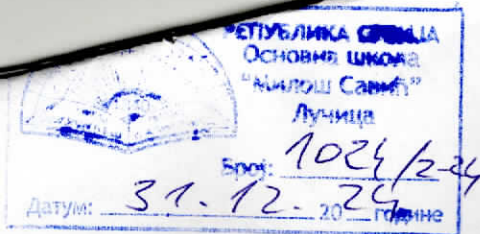 РЕПУБЛИКА СРБИЈА
Основна школа
"Милош Савић"
Лучица
Број: 1024/2-24
Датум: 31.12. 2024 године